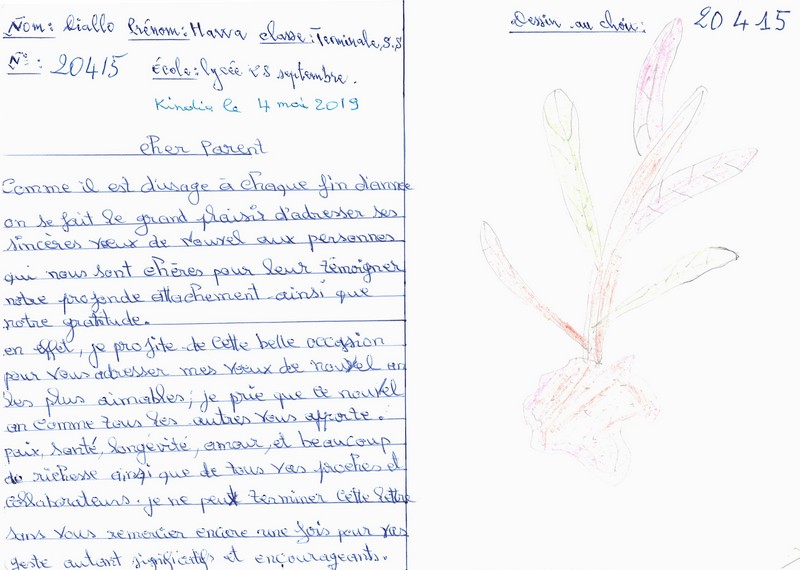 Nom: Diallo Prénom: Hawa classe: Terminale, S.S
N°: 20415 école: lycée 28 septembre.
Kindia le 4 mai 2019
cher Parent
Comme il est d'usage à chaque fin d'année
on se fait le grand plaisir d'adresser ses
sincères vœux de nouvel aux personnes
qui nous sont chères pour leur témoigner
notre profonde attachement ainsi que
notre gratitude.
en effet, je profite de cette belle occasion
pour vous adresser mes vœux de nouvel an
les plus aimables; je prie que ce nouvel
an comme tous les autres vous apporte.
paix, santé, longévité, amour, et beaucoup
de richesse ainsi que de tous vos proches et
collaborateurs. je ne peut terminer cette lettre
sans vous remercier encore une fois pour vos
geste autant significatifs et encourageants.
Dessin au choix: 20415